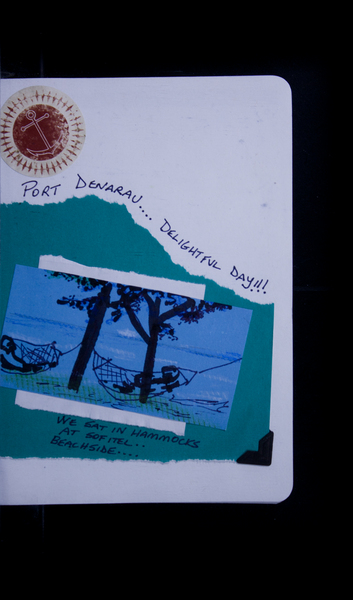 PORT DENARAU.... DELIGHTFUL DAY!!!
WE SAT IN HAMMOCKS
AT SOFITEL..
BEACHSIDE....